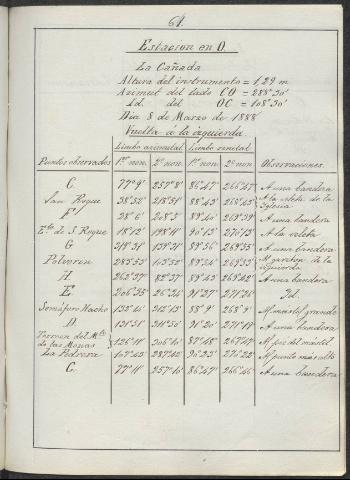 61.
Estacion en O.
La Cañada
Altura del instrumento = 1,29 m
Azimut del lado CO = 288°30'
Id. del OC = 108°30'
Dia 8 de Marzo de 1888
Vuelta á la izquierda
Limbo azimutal Limbo zenital
Puntos observados 1er non. 2º non. 1er non. 2º non. Observaciones.
C. 77°9' 257°8' 86°47' 266°47' A una bandera
San Roque 38°52' 218°51' 88°43' 268°43' A la veleta de la Iglesia
F' 28°6' 208°5' 89°40' 269°39' A una bandera
Eto. de S. Roque 18°12' 198°11' 90°13' 270°13' A la veleta
G 319°31' 139°31' 89°56' 269°55' A una bandera
Polvorin 283°53' 103°52' 89°54' 269°53' Mº garitón de la izquierda
H. 262°37' 82°37' 89°43' 269°42' A una bandera
E. 206°35' 26°34' 91°27' 271°26' Id.
Semáforo Hacho 133°16' 313°15' 88°9' 268°9' Mº mástil grande
D. 131°51' 311°50' 91°20' 271°19' A una bandera
Torreon del Mte. de las Monas 126°11' 306°10' 87°48' 267°47' Mº pie del mástil
La Pedrera 107°43' 287°42' 96°23' 276°22' Mº punto más alto
C. 77°11' 257°10' 86°47' 266°46' A una bandera